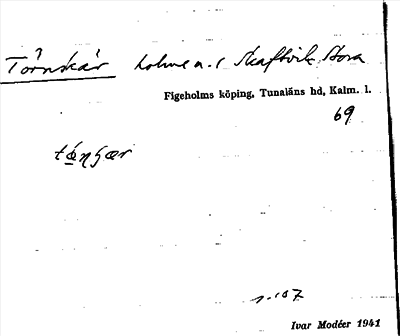 Törnskär holme n. i Skaftvik Stora
Figeholms köping, Tunaläns hd, Kalm. l.
69
tǿnʃær
s. 107
Ivar Modéer 1941